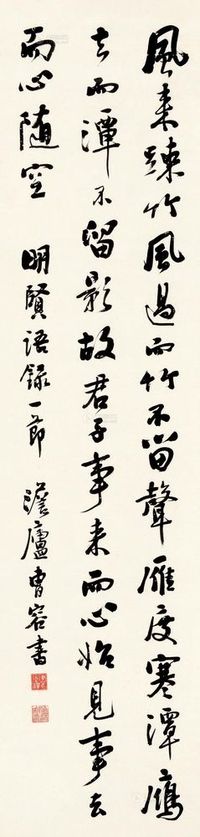 風來竦竹風過而竹不留聲雁度寒潭鴈
去而潭不留影故君子事来而心始見事去
而心随空 明賢語録一節 澹廬曹容書